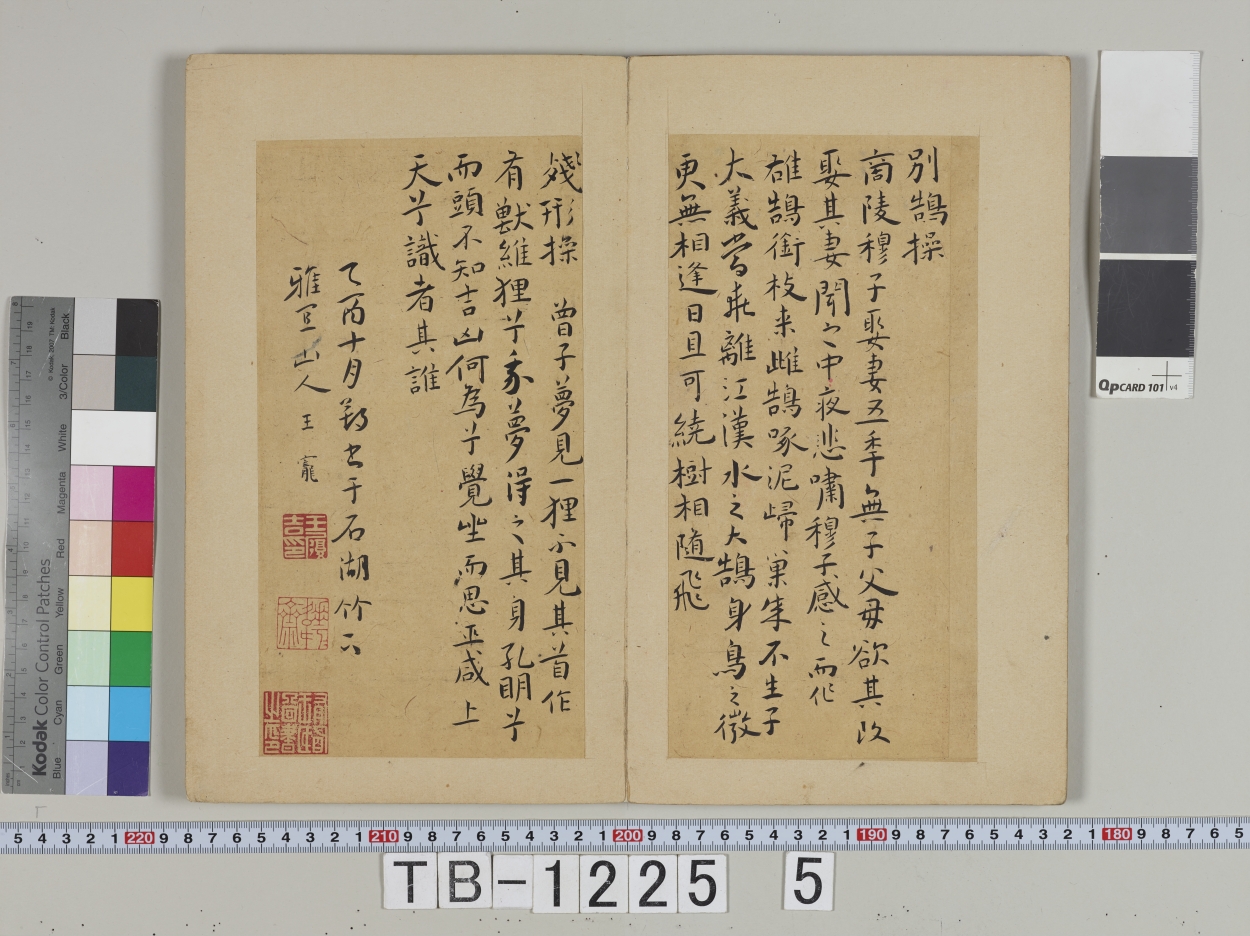 別鵠操
商陵穆子娶妻五年無子父母欲其改
娶其妻聞之中夜悲嘯穆子感之而作
雄鵠銜枝来雌鵠啄泥歸巢成不生子
大義當乖離江漢水之大鵠身鳥之微
更無相逢日且可繞樹相隨飛
殘形操 曾子夢見一狸不見其首作
有獸維狸兮我夢得之其身孔明兮
而頭不知吉凶何為兮覺坐而思巫咸上
天兮識者其誰
乙酉十月望書于石湖竹下
雅宜山人 王寵
王履吉印
Kodak Color Control Patches
Blue Cyan Green Yellow Red Magenta White 3/Color Black
QpCARD 101 v4
5 4 3 2 1 220 9 8 7 6 5 4 3 2 1 210 9 8 7 6 5 4 3 2 1 200 9 8 7 6 5 4 3 2 1 190 9 8 7 6 5 4 3 2 1 180 9 8 7 6 5
TB-1225 5